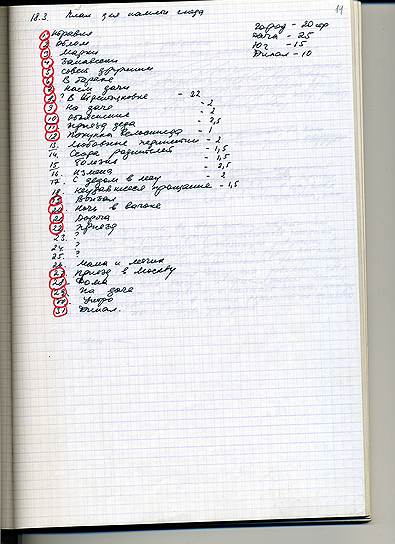 18.3. План для
11
город - 20 стр
дача - 25
Юг - 15
Финал - 10
1.
2. Облом
3. Марки
4. Занавески
5. Совсем другими
6. В городе
7. Наём дачи
8. ? В - 22
9. На даче - 2
10. Объяснение - 2
11. Приезд деда - 2,5
12. Покупка велосипеда - 1
13. Любовные перипетии - 2
14. Ссора родителей - 1,5
15. Болезнь - 1,5
16. Измена - 2,5
17. С дедом в лесу - 2
18. Неудавшееся прощание - 1,5
19. Вокзал
20. Ночь в вагоне
21. Дорога
22. Приезд
23. ?
24. ?
25. ?
26. Мама и летчик
27. Приезд в Москву
28. Дома
29. На даче
30. Утро
31. Финал.